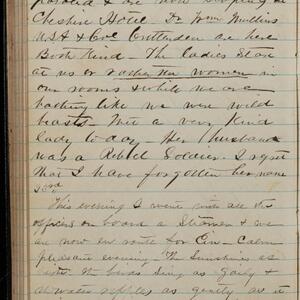 paroled & are now stopping at
Cheshire Hotel. Dr Wm Mullins
U.S.A & Col Crittenden are here
Both Kind – The ladies Stare
at us or rather the women in
our rooms & while we are
bathing like we were wild
beasts – Met a very kind
lady to day – Her husband
was a Rebel Soldier. I regret
that I have forgotten her name
3rd
This evening I went with all the
officers on board a Steamer & we
are now en route for Cin – Calm
pleasant evening. The Sunshines as
the birds sing as gaily &
water ripples as gently as it